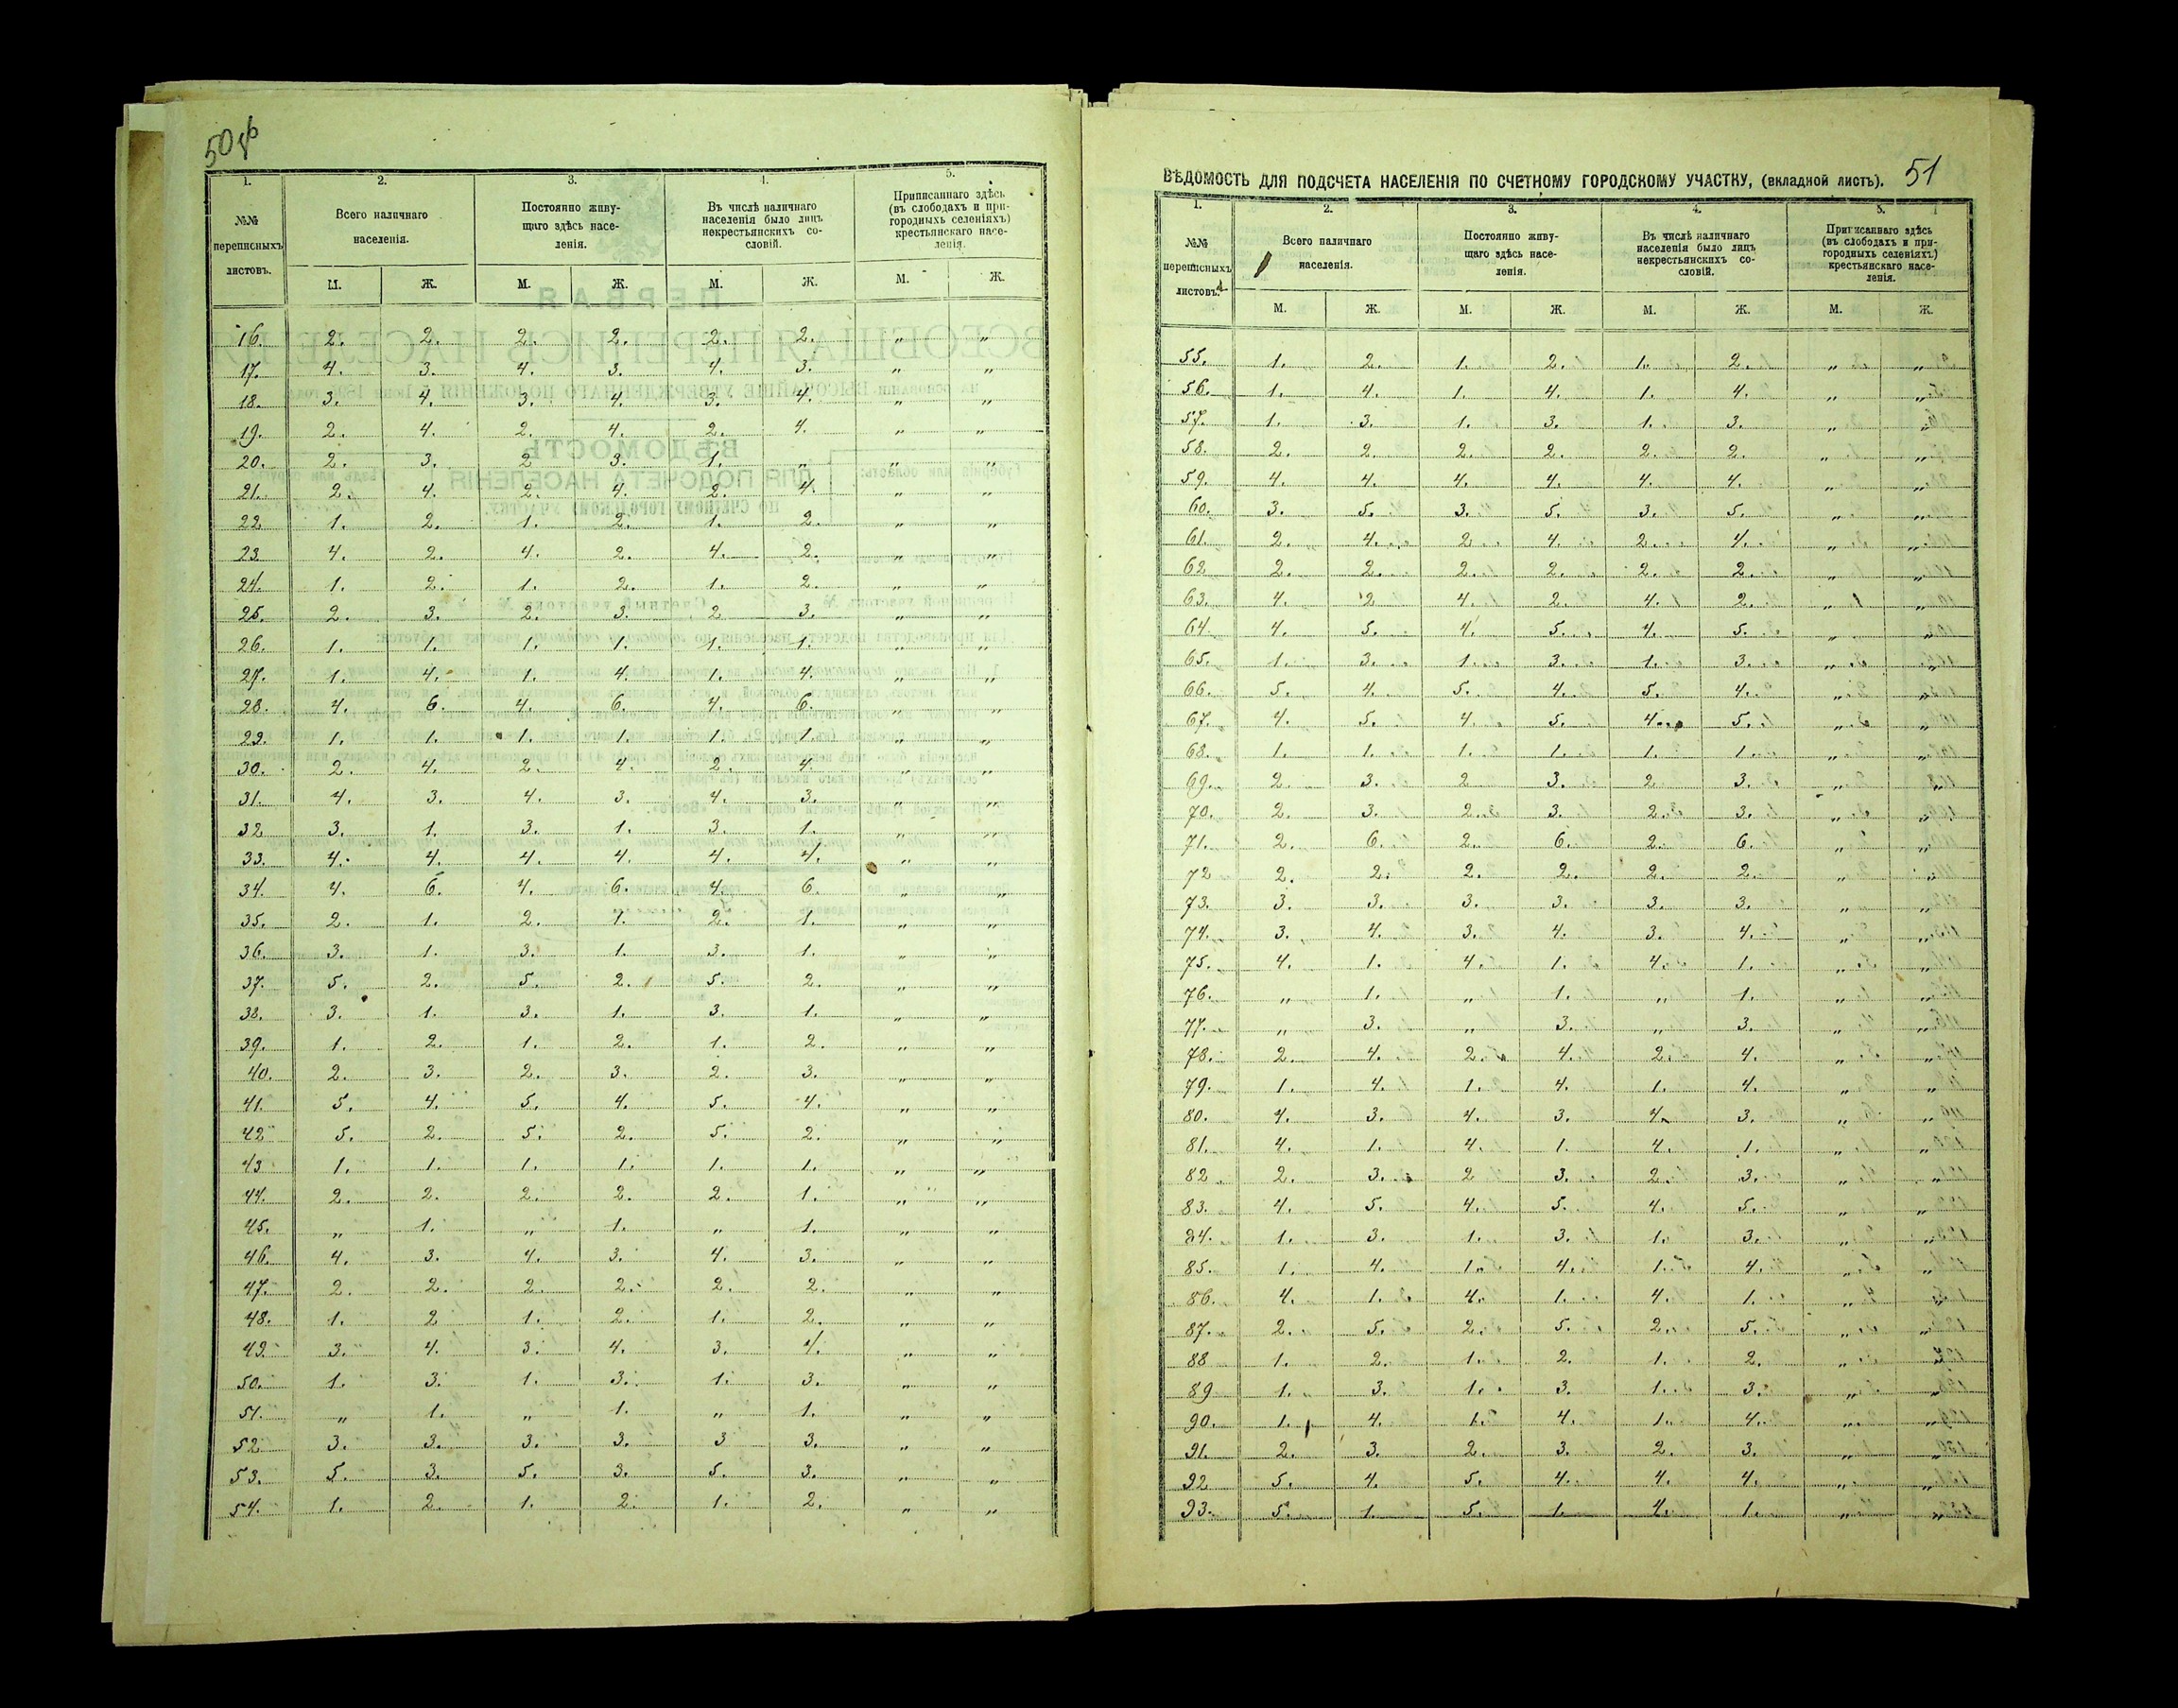 50 об
1. 2. 3. 4. 5.
№№ переписныхъ листовъ. Всего наличнаго населенія. Постоянно живущаго здѣсь населенія. Въ числѣ наличнаго населенія было лицъ некрестьянскихъ сословій. Приписаннаго здѣсь (въ слободахъ и пригородныхъ селеніяхъ) крестьянскаго населенія.
М. Ж. М. Ж. М. Ж. М. Ж.
16. 2. 2. 2. 2. 2. 2. „ „
17. 4. 3. 4. 3. 4. 3. „ „
18. 3. 4. 3. 4. 3. 4. „ „
19. 2. 4. 2. 4. 2. 4. „ „
20. 2. 3. 2 3. 1. „ „ „
21. 2. 4. 2. 4. 2. 4. „ „
22 1. 2. 1. 2. 1. 2. „ „
23 4. 2. 4. 2. 4. 2. „ „
24. 1. 2. 1. 2. 1. 2. „ „
25. 2. 3. 2. 3. 2 3. „ „
26. 1. 1. 1. 1. 1. 1. „ „
27. 1. 4. 1. 4. 1. 4. „ „
28. 4. 6. 4. 6. 4. 6. „ „
29. 1. 1. 1. 1. 1. 1. „ „
30. 2. 4. 2. 4. 2. 4. „ „
31. 4. 3. 4. 3. 4. 3. „ „
32 3. 1. 3. 1. 3. 1. „ „
33. 4. 4. 4. 4. 4. 4. „ „
34. 4. 6. 4. 6. 4. 6. „ „
35. 2. 1. 2. 1. 2. 1. „ „
36. 3. 1. 3. 1. 3. 1. „ „
37. 5. 2. 5. 2. 5. 2. „ „
38. 3. 1. 3. 1. 3. 1. „ „
39. 1. 2. 1. 2. 1. 2. „ „
40. 2. 3. 2. 3. 2. 3. „ „
41. 5. 4. 5. 4. 5. 4. „ „
42 5. 2. 5. 2. 5. 2. „ „
43 1. 1. 1. 1. 1. 1. „ „
44. 2. 2. 2. 2. 2. 1. „ „
45. „ 1. „ 1. „ 1. „ „
46. 4. 3. 4. 3. 4. 3. „ „
47. 2. 2. 2. 2. 2. 2. „ „
48. 1. 2 1. 2. 1. 2. „ „
49. 3. 4. 3. 4. 3. 4. „ „
50. 1. 3. 1. 3. 1. 3. „ „
51. „ 1. „ 1. „ 1. „ „
52 3. 3. 3. 3. 3 3. „ „
53. 5. 3. 5. 3. 5. 3. „ „
54. 1. 2. 1. 2. 1. 2. „ „
ВѢДОМОСТЬ ДЛЯ ПОДСЧЕТА НАСЕЛЕНІЯ ПО СЧЕТНОМУ ГОРОДСКОМУ УЧАСТКУ, (вкладной листъ). 51
1. 2. 3. 4. 5.
№№ переписныхъ листовъ. Всего наличнаго населенія. Постоянно живущаго здѣсь населенія. Въ числѣ наличнаго населенія было лицъ некрестьянскихъ сословій. Приписаннаго здѣсь (въ слободахъ и пригородныхъ селеніяхъ) крестьянскаго населенія.
М. Ж. М. Ж. М. Ж. М. Ж.
55. 1. 2. 1. 2. 1. 2. „ „
56. 1. 4. 1. 4. 1. 4. „ „
57. 1. 3. 1. 3. 1. 3. „ „
58. 2. 2. 2. 2. 2. 2. „ „
59. 4. 4. 4. 4. 4. 4. „ „
60. 3. 5. 3. 5. 3. 5. „ „
61. 2. 4. 2 4. 2. 4. „ „
62 2. 2. 2. 2. 2. 2. „ „
63. 4. 2 4. 2. 4. 2. „ „
64. 4. 5. 4. 5. 4. 5. „ „
65. 1. 3. 1. 3. 1. 3. „ „
66. 5. 4. 5. 4. 5. 4. „ „
67. 4. 5. 4. 5. 4. 5. „ „
68. 1. 1. 1. 1. 1. 1. „ „
69. 2. 3. 2 3. 2. 3. „ „
70. 2. 3. 2. 3. 2. 3. „ „
71. 2. 6. 2. 6. 2. 6. „ „
72 2. 2. 2. 2. 2. 2. „ „
73. 3. 3. 3. 3. 3. 3. „ „
74. 3. 4. 3. 4. 3. 4. „ „
75. 4. 1. 4. 1. 4. 1. „ „
76. „ 1. „ 1. „ 1. „ „
77. „ 3. „ 3. „ 3. „ „
78. 2. 4. 2. 4. 2. 4. „ „
79. 1. 4. 1. 4. 1. 4. „ „
80. 4. 3. 4. 3. 4. 3. „ „
81. 4. 1. 4. 1. 4. 1. „ „
82 2. 3. 2 3. 2. 3. „ „
83. 4. 5. 4. 5. 4. 5. „ „
84. 1. 3. 1. 3. 1. 3. „ „
85. 1. 4. 1. 4. 1. 4. „ „
86. 4. 1. 4. 1. 4. 1. „ „
87. 2. 5. 2. 5. 2. 5. „ „
88 1. 2. 1. 2. 1. 2. „ „
89 1. 3. 1. 3. 1. 3. „ „
90. 1. 4. 1. 4. 1. 4. „ „
91. 2. 3. 2. 3. 2. 3. „ „
92 5. 4. 5. 4. 4. 4. „ „
93. 5. 1. 5. 1. 4. 1. „ „